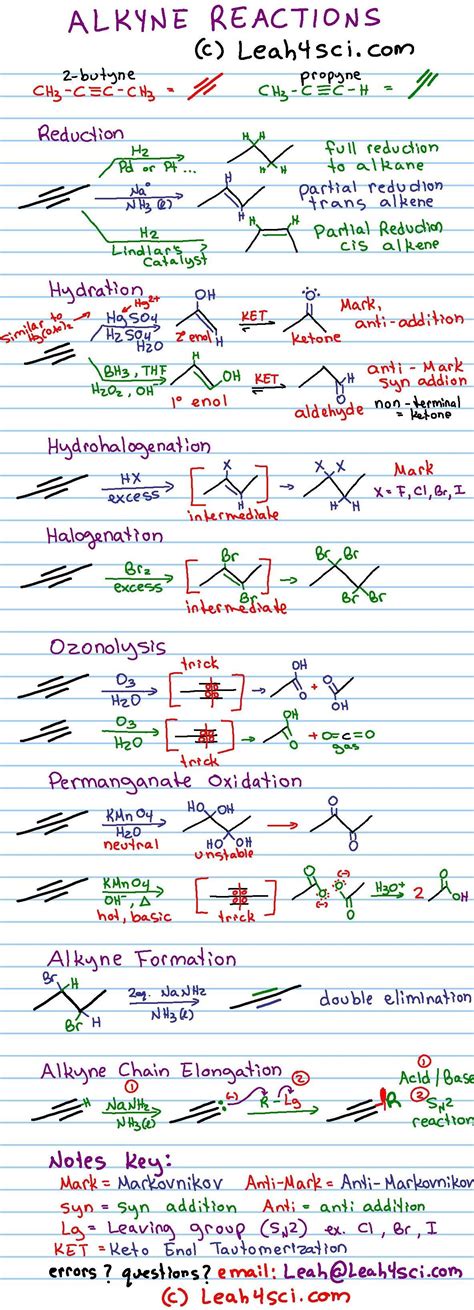 ALKYNE REACTIONS
(c) Leah4sci.com
2-butyne propyne
CH₃-C≡C-CH₃ = CH₃-C≡C-H =
Reduction
H₂
Pd or Pt...
H H
H H
full reduction
to alkane
Na°
NH₃(l)
H
H
partial reduction
trans alkene
H₂
Lindlar's
Catalyst
H H
Partial Reduction
cis alkene
Hydration
Similar to
Hg²⁺
HgSO₄
H₂SO₄
H₂O
OH
H
2° enol
KET
O
ketone
Mark,
anti-addition
BH₃, THF
H₂O₂, OH⁻
H
OH
1° enol
KET
O
H
aldehyde
anti-Mark
syn addion
non-terminal
= ketone
Hydrohalogenation
HX
excess
X
H
intermediate
X X
H H
Mark
X = F, Cl, Br, I
Halogenation
Br₂
excess
Br
Br
intermediate
Br Br
Br Br
Ozonolysis
O₃
H₂O
trick
OH
O
+
O
OH
O₃
H₂O
trick
OH
O
+ O=C=O
gas
Permanganate Oxidation
KMnO₄
H₂O
neutral
HO OH
HO OH
unstable
O
O
KMnO₄
OH⁻, Δ
hot, basic
trick
O O (-)
O O
(-)
H₃O⁺
2
O
OH
Alkyne Formation
Br H
Br H
2eq. NaNH₂
NH₃(l)
double elimination
Alkyne Chain Elongation
H
①
NaNH₂
NH₃(l)
(-)
R-Lg
②
R
①
Acid/Base
② SN2
reaction
Notes Key:
Mark = Markovnikov Anti-Mark = Anti-Markovnikov
syn = syn addition Anti = anti addition
Lg = Leaving group (SN2) ex. Cl, Br, I
KET = Keto Enol Tautomerization
errors? questions? email: Leah@Leah4sci.com
(c) Leah4sci.com